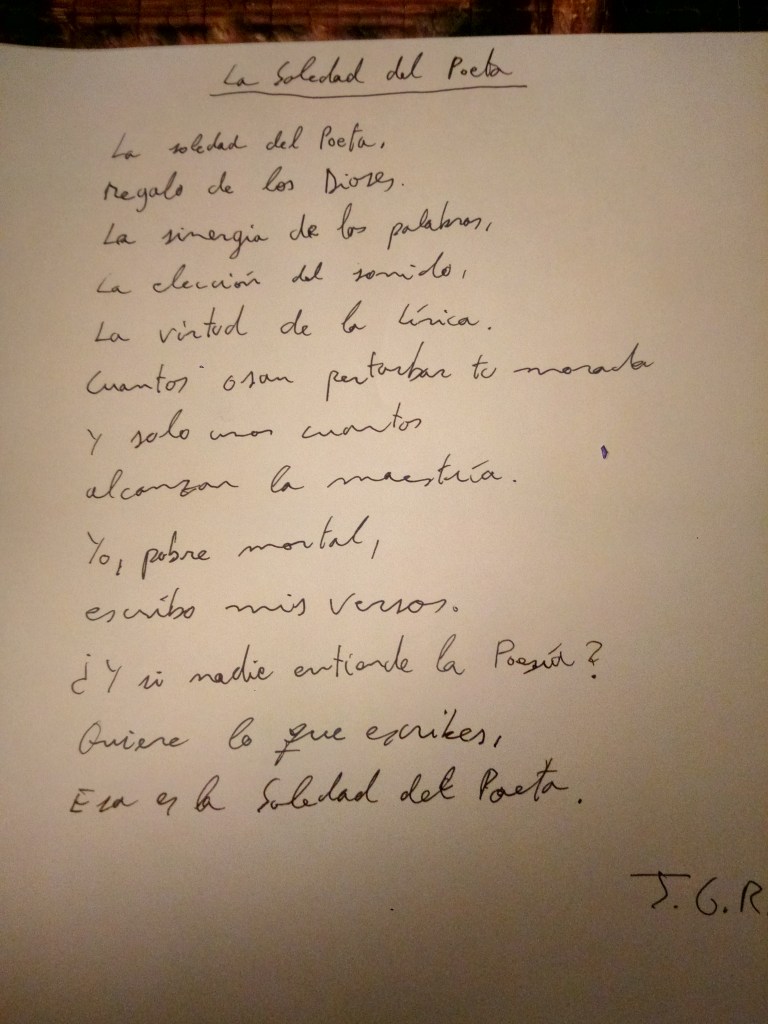 La Soledad del Poeta
La soledad del Poeta,
Regalo de los Dioses.
La sinergia de las palabras,
La elección del sonido,
La virtud de la Lírica.
Cuantos osan perturbar tu morada
Y solo unos cuantos
alcanzan la maestría.
Yo, pobre mortal,
escribo mis versos.
¿Y si nadie entiende la Poesía?
Quiere lo que escribes,
Esa es la Soledad del Poeta.
J.G.R.